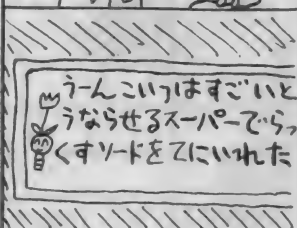 うーんこいつはすごいと
うならせるスーパーでらっ
くすソードをてにいれた